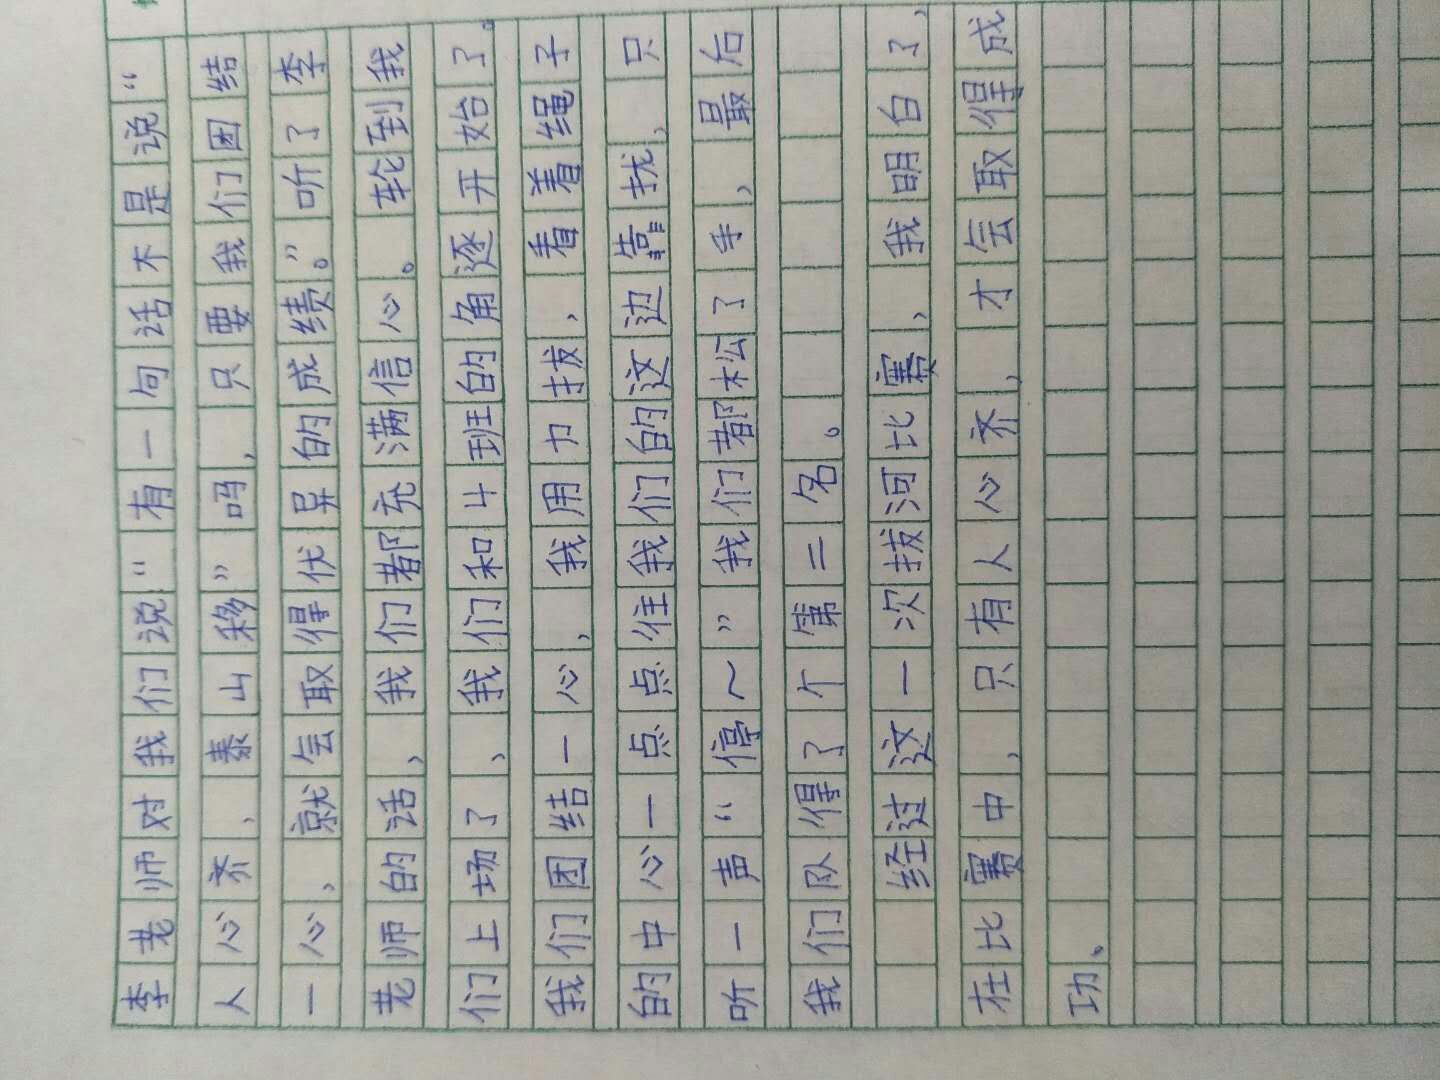 李老师对我们说“有一句话不是说“
人心齐，泰山移”吗，只要我们团结
一心，就会取得优异的成绩。”听了李
老师的话，我们都充满信心。轮到我
们上场了，我们和4班的角逐开始了。
我们团结一心，我用力拔，看着绳子
的中心一点点往我们的这边靠拢，只
听一声“停～”我们都松了手，最后
我们队得了个第二名。
经过这一次拔河比赛，我明白了，
在比赛中，只有人心齐，才会取得成
功。